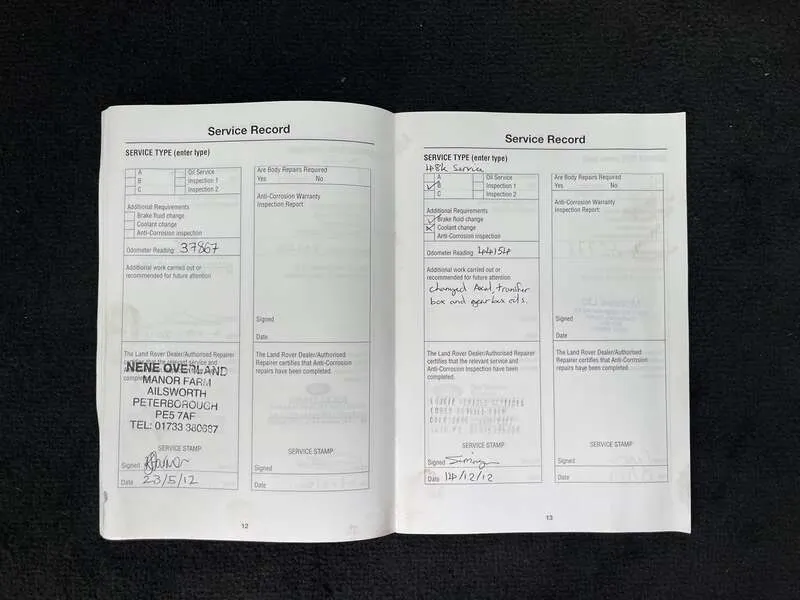 Service Record
SERVICE TYPE (enter type)
A Oil Service
B Inspection 1
C Inspection 2
Additional Requirements
Brake fluid change
Coolant change
Anti-Corrosion inspection
Odometer Reading: 37867
Additional work carried out or
recommended for future attention
The Land Rover Dealer/Authorised Repairer
certifies that the relevant service and
NENE OVERLAND
MANOR FARM
AILSWORTH
PETERBOROUGH
PE5 7AF
TEL: 01733 380687
SERVICE STAMP
Signed
Date 23/5/12
Are Body Repairs Required
Yes No
Anti-Corrosion Warranty
Inspection Report:
Signed
Date
The Land Rover Dealer/Authorised
Repairer certifies that Anti-Corrosion
repairs have been completed.
SERVICE STAMP
Signed
Date
12
Service Record
SERVICE TYPE (enter type)
48k Service
A Oil Service
B Inspection 1
C Inspection 2
Additional Requirements
Brake fluid change
Coolant change
Anti-Corrosion inspection
Odometer Reading: 44154
Additional work carried out or
recommended for future attention
changed Axel, transfer
box and gear box oils.
The Land Rover Dealer/Authorised
Repairer certifies that the relevant service and
Anti-Corrosion Inspection have been
completed.
SERVICE STAMP
Signed
Date 14/12/12
Are Body Repairs Required
Yes No
Anti-Corrosion Warranty
Inspection Report:
Signed
Date
The Land Rover Dealer/Authorised
Repairer certifies that Anti-Corrosion
repairs have been completed.
SERVICE STAMP
Signed
Date
13